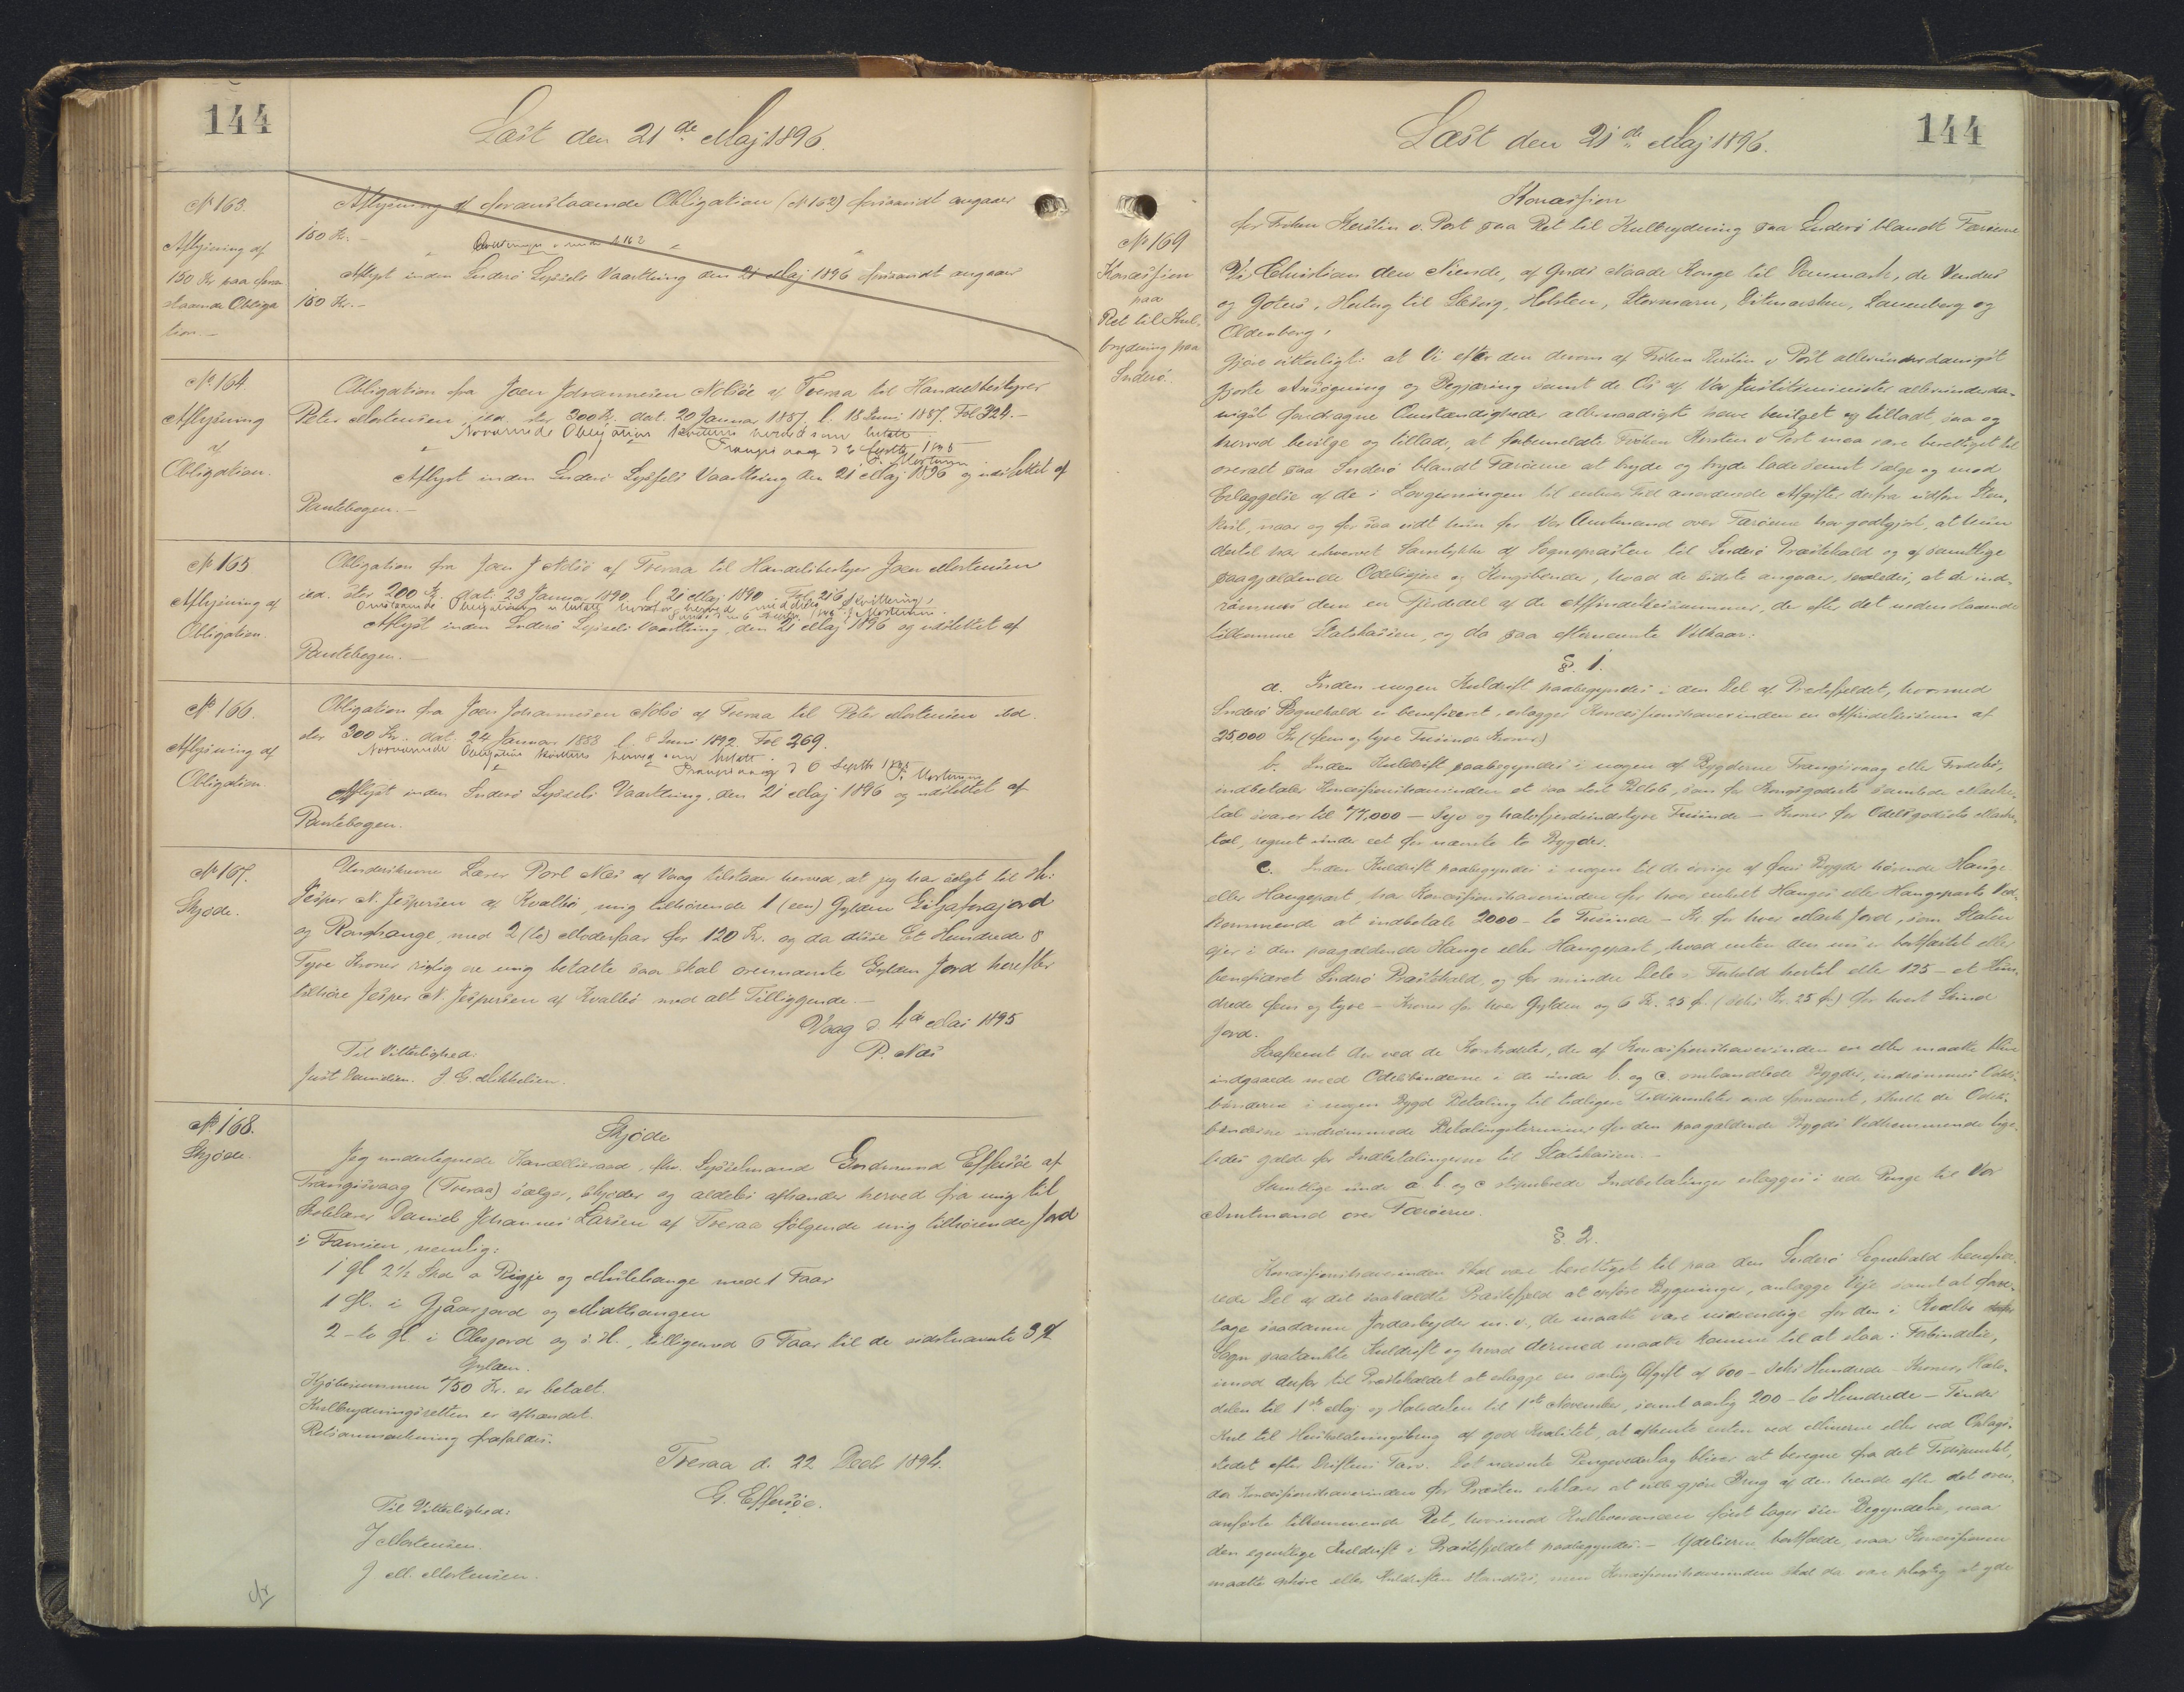 144
Læst den 21de Maj 1896.
No 163.
Aflysning af
150 Kr paa foran
staaende Obliga
tion.-
Aflysning af foranstaaende Obligation (No 162) forsaavidt angaaer
150 Kr.-
Aflyst inden Suderø Syssels Vaarthing den 21 Maj 1896 forsaavidt angaaer
150 Kr.-
No 164
Aflysning
af
Obligation.
Obligation fra Joen Johannesen Nolsöe af Tveraa til Handelsbestyrer
Peter Mortensen ibd. stor 300 Kr. dat. 20 Januar 1887, l. 18 Juni 1887. Fol 324.-
Novnævnte Obligation kvitteres herved som betalt
Trangisvaag d 6 Septbr 1895
P. Mortensen
Aflyst inden Suderø Syssels Vaarthing den 21 Maj 1896 og udslettet af
Pantebogen.-
No 165
Aflysning af
Obligation.
Obligation fra Joen J Nolsö af Tveraa til Handelsbestyrer Joen Mortensen
ibd. stor 200 Kr. dat. 23 Januar 1890. l. 21 Maj 1890. Fol. 216
Omstaaende Obligation er betalt hvorfor herved meddeles Kvittering,
Mortensen.
Aflyst inden Suderø Syssels Vaarthing, den 21 Maj 1896 og udslettet af
Pantebogen.-
No 166.
Aflysning af
Obligation
Obligation fra Joen Johannesen Nolsö af Tveraa til Peter Mortensen ibd.
stor 300 Kr. dat. 24 Januar 1888 l. 8 Juni 1892. Fol 269.
Novnævnte Obligation kvitteres herved som betalt.
Trangisvaag d 6 Septbr 1895
P. Mortensen
Aflyst inden Suderø Syssels Vaarthing, den 21 Maj 1896 og udslettet af
Pantebogen.
No 167.
Skjøde.
Underskrevne Lærer Porl Næs af Vaag tilstaaer herved, at jeg har solgt til Hr.
Jesper N. Jespersen af Kvalbø, mig tilhørende 1 (een) Gylden Giljaforajord
og Ronghauge, med 2 (to) Moderfaar for 120 Kr. og da disse Et Hundrede &
Tyve Kroner rigtig ere mig betalte saa skal ovennævnte Gylden Jord herefter
tilhøre Jesper N. Jespersen af Kvalbø med alt Tilliggende.-
Vaag d 4de Mai 1895
P. Næs
Til Vitterlighed:
Just Davidsen. J G. Mikkelsen.
No 168.
Skjøde.
Skjøde
Jeg undertegnede Kancelliraad, fhv. Sysselmand Gudmund Effersöe af
Trangisvaag (Tveraa) sælger, skjøder og aldeles afhænder herved fra mig til
Skolelærer Daniel Johannes Larsen af Tveraa følgende mig tilhørende Jord
i Famien, nemlig:
1 gl 2½ Skd a Riggje og Mulehauge med 1 Faar
1 Gl. i Gjåarjord og Miðhaugen
2-to gl. i Olesjord og s. St., tilligemed 6 Faar til de sidstnævnte 3
Gylden.
Kjøbesummen 750 Kr. er betalt.
Kulbrydningsretten er afhændet.
Retsanmærkning frafaldes.
Tveraa d. 22 Decb 1894.
G. Effersøe.
Til Vitterlighed:
J Mortensen.
J M. Mortensen.
144
Læst den 21de Maj 1896.
No 169
Koncession
paa
Ret til Kul-
brydning paa
Suderø.
Koncession
for Frøken Kerstin v. Post paa Ret til Kulbrydning paa Suderø blandt Færøerne
Vi Christian den Niende, af Guds Naade Konge til Danmark, de Venders
og Goters, Hertug til Slesvig, Holsten, Stormarn, Ditmarsken, Lauenborg og
Oldenborg,
Gjøre vitterligt: at Vi efter den derom af Frøken Kerstin v Post allerunderdanigst
gjorte Ansøgning og Begjæring samt de Os af Vor Justitsminister allerunderda-
nigst foredragne Omstændigheder allernaadigst have bevilget og tilladt, saa og
herved bevilge og tillade, at forbemeldte Frøken Kerstin v Post maa være berettiget til
overalt paa Suderø blandt Færøerne at bryde og bryde lade samt sælge og mod
Erlæggelse af de i Lovgivningen til enhver Tid anordnede Afgifter derfra udføre Sten-
kul, naar og for saa vidt hun for Vor Amtmand over Færøerne har godtgjort, at hun
dertil har erhvervet Samtykke af Sognepræsten til Suderø Præstekald og af samtlige
paagjældende Odelsejere og Kongsbønder, hvad de sidste angaaer, saaledes, at de ind-
rømmes dem en Fjerdedel af de Afstaaelsessummer, der efter det nedenstaaende
tilkomme Statskassen, og da paa efternævnte Vilkaar:
§. 1.
a. Inden nogen Kuldrift paabegyndes i den Del af Præstefjeldet, hvormed
Suderø Sognekald er beneficeret, erlægger Koncessionshaverinden en Afstaaelsessum af
25,000 Kr (fem og tyve Tusinde Kroner)
b. Inden Kuldrift paabegyndes i nogen af Bygderne Trangisvaag eller Frodebø,
indbetaler Koncessionshaverinden et saa stort Beløb, som for Kongsgodsets samlede Marke-
tal svarer til 77,000 - Syv og halvfjerdsindstyve Tusinde - Kroner for Odelsgodsets Marke-
tal, regnet under eet for nævnte to Bygder.
c. Inden Kuldrift paabegyndes i nogen til de øvrige af Øens Bygder hørende Hauge
eller Haugepart, har Koncessionshaverinden for hver enkelt Hauges eller Hauge­parts Ved-
kommende at indbetale 2000 - to Tusinde - Kr. for hver Mark Jord, som Staten
ejer i den paagældende Hauge eller Haugepart, hvad enten den nu er bortfæstet eller
beneficeret Suderø Præstekald, og for mindre Dele i Forhold hertil eller 125 - et Hun-
drede fem og tyve - Kroner for hver Gylden og 6 Kr. 25 Ø. (seks Kr. 25 Ø.) for hvert Skind
Jord.
Saafremt der ved de Kontrakter, der af Koncessionshaverinden er eller maatte blive
indgaaede med Odelsbønderne i de under b. og c. omhandlede Bygder, indrømmes Odels-
bønderne i nogen Bygd Betaling til tidligere Tidspunkter end fornævnt, skulle de Odels-
bønderne indrømmede Betalingsterminer for den paagældende Bygds Vedkommende lige-
ledes gælde for Indbetalingerne til Statskassen.-
Samtlige under a. b. og c stipulerede Indbetalinger erlægges i rede Penge til Vor
Amtmand over Færøerne.
§. 2.
Koncessionshaverinden skal være berettiget til paa den Suderø Sognekald benefice-
rede Del af det saakaldte Præstefjeld at opføre Bygninger, anlægge Veje samt at fore-
tage saadanne Jordarbejder m. v., de maatte være nødvendige for den i Kvalbø
Sogn paatænkte Kuldrift og hvad dermed maatte komme til at staa i Forbindelse,
imod derfor til Præstekaldet at erlægge en aarlig Afgift af 600 - Seks Hundrede - Kroner, Halv-
delen til 1ste Maj og Halvdelen til 1ste November, samt aarlig 200 - to Hundrede - Tønder
Kul til Husholdningsbrug af god Kvalitet, at afhente enten ved Minerne eller ved Oplags-
stedet efter Driftens Tarv. Det nævnte Pengevederlag bliver at beregne fra det Tidspunkt,
da Koncessionshaverinden for Præsten erklærer at ville gjøre Brug af den hende efter det oven-
anførte tilkommende Ret, hvorimod Kulleverancen først tager sin Begyndelse, naar
den egentlige Kuldrift i Præstefjeldet paabegyndes.- Ydelserne bortfalde, naar Koncessionen
maatte ophøre eller Kuldriften standses, men Koncessionshaverinden skal da være pligtig at yde